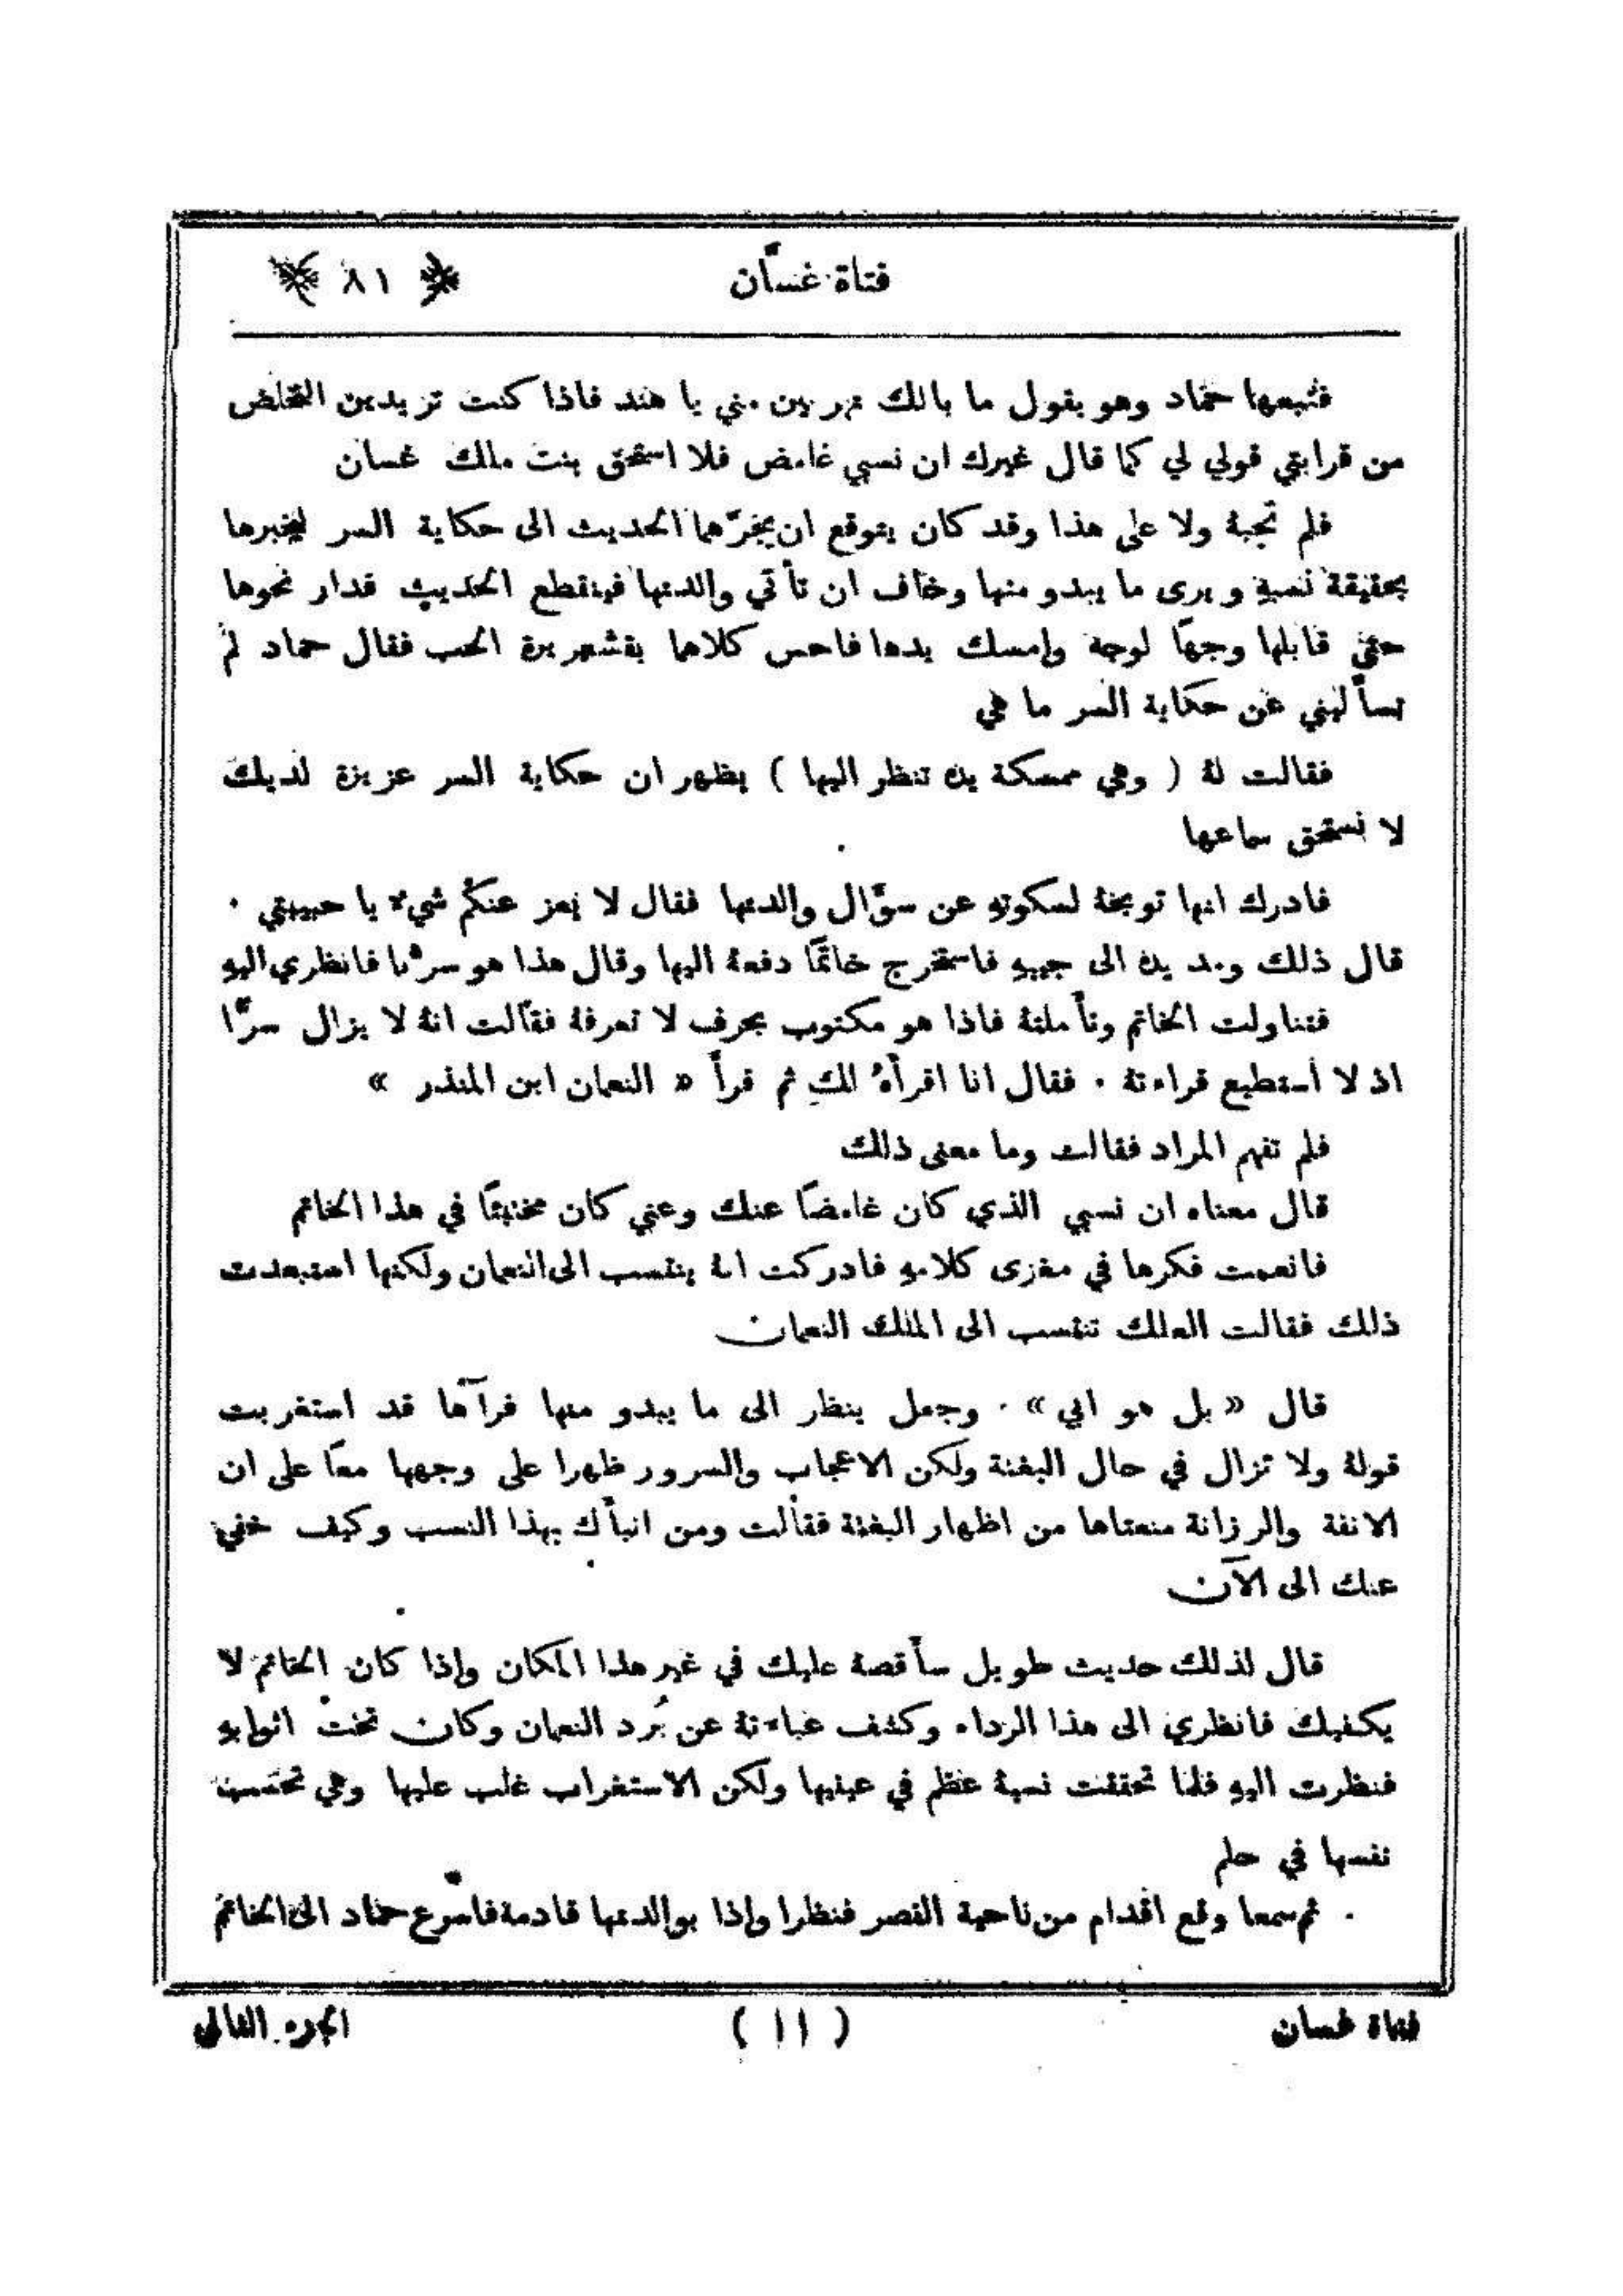 فتاة غسّان ٨١
فتبعها حمّاد وهو يقول ما بالك تهربين مني يا هند فاذا كنت تريدين التخلص
من قرابتي قولي لي كما قال غيرك ان نسبي غامض فلا استحق بنت ملك غسان
فلم تجبهُ ولا على هذا وقد كان يتوقع ان يجرّهما الحديث الى حكاية السر ليخبرها
بحقيقة نسبهِ ويرى ما يبدو منها وخاف ان تأتي والدتها فينقطع الحديث فدار نحوها
حتى قابلها وجهًا لوجه وامسك يدها فاحس كلاهما بقشعريرة الحب فقال حماد لم
تسأليني عن حكاية السر ما هي
فقالت لهُ ( وهي ممسكة يدهُ تنظر اليها ) يظهر ان حكاية السر عزيزة لديك
لا نستحق سماعها
فادرك انها توبخهُ لسكوتهِ عن سؤّال والدتها فقال لا يعز عنكُم شيءٌ يا حبيبتي ٠
قال ذلك ومد يدهُ الى جيبهِ فاستخرج خاتمًا دفعهُ اليها وقال هذا هو سرنا فانظري اليهِ
فتناولت الخاتم وتأملتهُ فاذا هو مكتوب بحرف لا تعرفهُ فقالت انهُ لا يزال سرًّا
اذ لا أستطيع قراءتهُ ٠ فقال انا اقرأهُ لكِ ثم قرأ « النعمان ابن المنذر »
فلم تفهم المراد فقالت وما معنى ذلك
قال معناه ان نسبي الذي كان غامضًا عنك وعني كان مختبئًا في هذا الخاتم
فانعمت فكرها في مغزى كلامهِ فادركت انهُ ينتسب الى النعمان ولكنها استبعدت
ذلك فقالت العلك تنتسب الى الملك النعمان
قال « بل هو ابي » ٠ وجعل ينظر الى ما يبدو منها فرآها قد استغربت
قولهُ ولا تزال في حال البغتة ولكن الاعجاب والسرور ظهرا على وجهها معًا على ان
الانفة والرزانة منعتاها من اظهار البغتة فقالت ومن انبأك بهذا النسب وكيف خفي
عنك الى الآن
قال لذلك حديث طويل سأقصهُ عليك في غير هذا المكان واذا كان الخاتم لا
يكفيك فانظري الى هذا الرداء وكشف عباءتهُ عن بُرد النعمان وكان تحت اثوابهِ
فنظرت اليهِ فلما تحققت نسبهُ عظم في عينيها ولكن الاستغراب غلب عليها وهي تحسب
نفسها في حلم
ثم سمعا وقع اقدام من ناحية القصر فنظرا واذا بوالدتها قادمة فاسرع حماد الى الخاتم
فتاة غسان ( ١١ ) الجزء الثاني